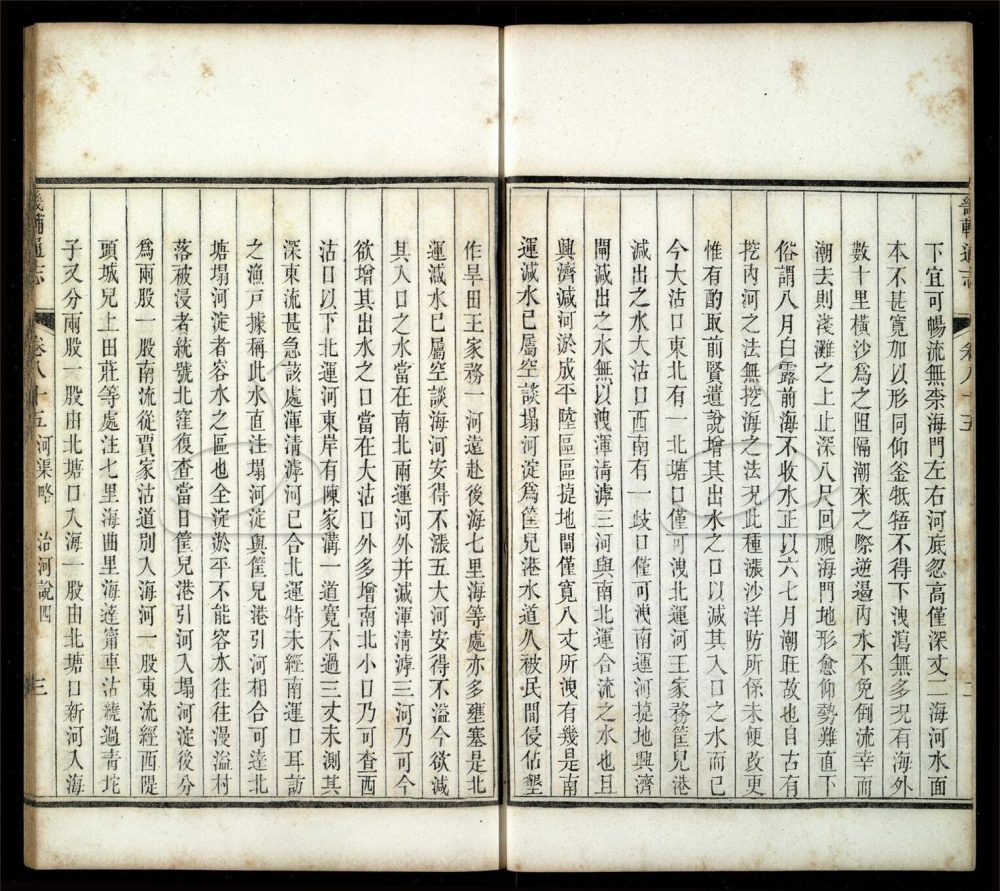 畿輔通志 卷八十五
下宜可暢流無柰海門左右河底忽高僅深丈二海河水面
本不甚寬加以形同仰釜牴牾不得下洩瀉無多況有海外
數十里橫沙爲之阻隔潮來之際逆遏內水不免倒流幸而
潮去則淺灘之上止深八尺回視海門地形愈仰勢難直下
俗謂八月白露前海不收水正以六七月潮旺故也自古有
挖內河之法無挖海之法況此種漲沙洋防所係未便改更
惟有酌取前賢遺說增其出水之口以減其入口之水而已
今大沽口東北有一北塘口僅可洩北運河王家務筐兒港
減出之水大沽口西南有一歧口僅可洩南運河捷地興濟
閘減出之水無以洩渾清滹三河與南北運合流之水也且
興濟減河淤成平陸區區捷地閘僅寬八丈所洩有幾是南
運減水已屬空談塌河淀爲筐兒港水道久被民間侵佔墾
作旱田王家務一河遠赴後海七里海等處亦多壅塞是北
運減水已屬空談海河安得不漲五大河安得不溢今欲減
其入口之水當在南北兩運河外幷減渾清滹三河乃可今
欲增其出水之口當在大沽口外多增南北小口乃可查西
沽口以下北運河東岸有陳家溝一道寬不過三丈未測其
深東流甚急該處渾清滹河已合北運特未經南運口耳訪
之漁戶據稱此水直注塌河淀與筐兒港引河相合可達北
塘塌河淀者容水之區也全淀淤平不能容水往往漫溢村
落被浸者統號北窪復查當日筐兒港引河入塌河淀後分
爲兩股一股南流從賈家沽道別入海河一股東流經西隄
頭城兒上田莊等處注七里海曲里海達甯車沽繞過青坨
子又分兩股一股由北塘口入海一股由北塘口新河入海
畿輔通志 卷八十五 河渠略 治河說四 三